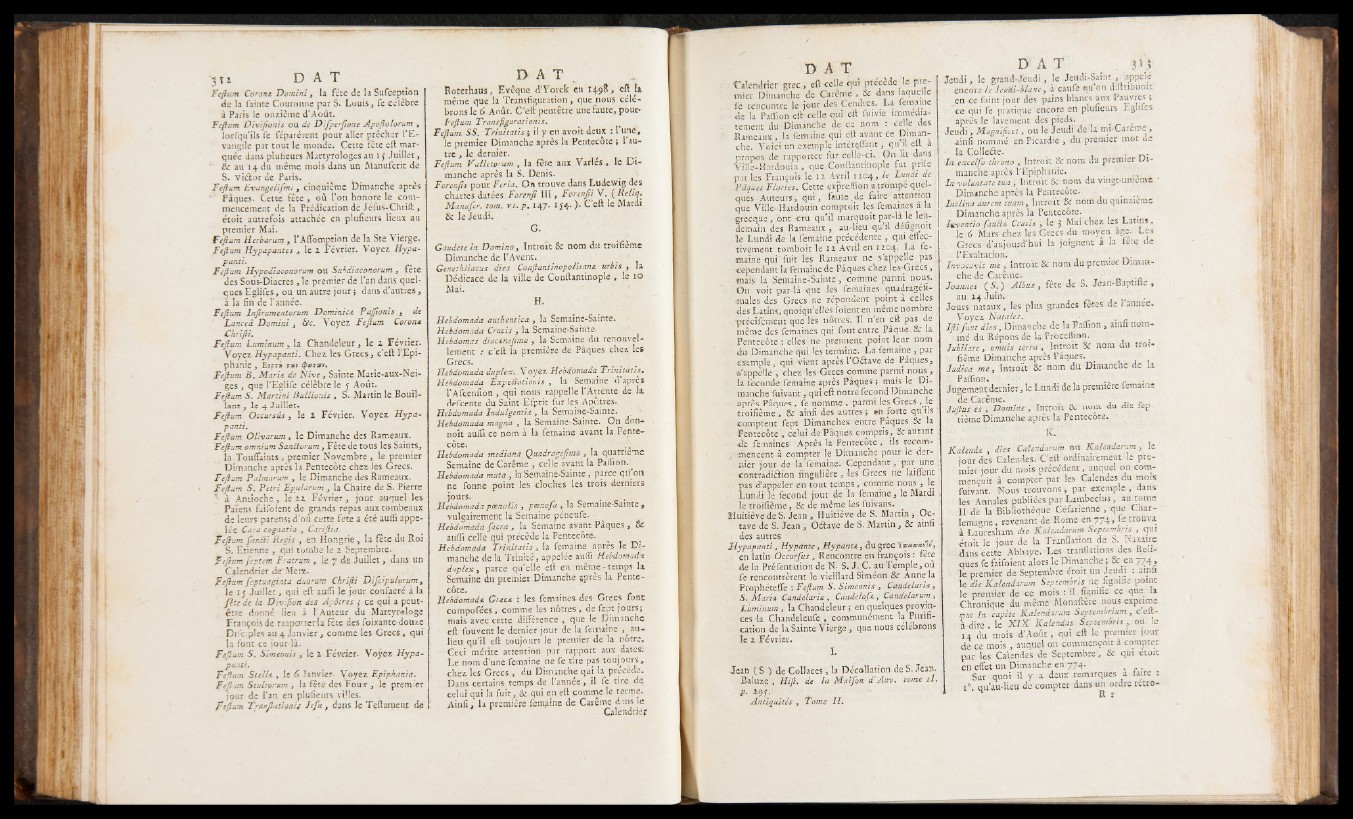 312 D A T
Festum Coronæ Domini, la fête de la Susception
de la sainte Couronne par S. Louis, se célèbre
à Paris le onzième d'Août.
Festum Divisionis ou de Dispersione Apostolorum,
lorsqu'ils se séparèrent pour aller prêcher l'E-
vangile par tout le monde. Cette fête est mar-
quée dans plusieurs Martyrologes au 15 Juillet,
& au 14 du même mois dans un Manuscrit de
S. Victor de Paris.
Festum Evangelismi, cinquième Dimanche après
Pâques. Cette fête, où l'on honore le com-
mencement de la Prédication de Jésus-Christ,
étoit autrefois attachée en plusieurs lieux au
premier Mai.
Festum Herbarum, l'Assomption de la Ste Vierge.
Festum Hypapantes, le 2 Février. Voyez Hypa-
panti.
Festum Hypodiaconorum ou Subdiaconorum, fête
des Sous-Diacres, le premier de l'an dans quel-
ques Eglises, ou un autre jour; dans d'autres,
à la fin de l'année.
Festum Instrumentorum Dominicæ Passionis, de
Lanceâ Domini, &c. Voyez Festum Coronæ
Christi.
Festum Luminum, la Chandeleur, le 2 Février.
Voyez Hypapanti. Chez les Grecs, c'est l'Epi-
phanie,
Festum B. Mariæ de Nive, Sainte Marie-aux-Nei-
ges, que l'Eglise célèbre le 5 Août.
Festum S. Martini Bullionis, S. Martin le Bouil-
lant, le 4 Juillet.
Festum Occursûs, le 2 Février. Voyez Hypa-
panti.
Festum Olivarum, le Dimanche des Rameaux.
Festum omnium Sanctorum, Fête de tous les Saints,
la Toussaints, premier Novembre, le premier
Dimanche après la Pentecôte chez les Grecs.
Festum Palmarum, le Dimanche des Rameaux.
Festum S. Petri Epularum, la Chaire de S. Pierre
à Antioche, le 22 Février, jour auquel les
Païens faisoient de grands repas aux tombeaux
de leurs parens; d'où cette fête a été aussi appe-
lée Cara cognatio, Caristia.
Festum sancti Regis, en Hongrie, la fête du Roi
S. Etienne, qui tombe le 2 Septembre.
Festum septem Fratrum, le 7 de Juillet, dans un
Calendrier de Metz.
Festum septuaginta duorum Christi Discipulorum,
le 15 Juillet, qui est aussi le jour consacré à la
fête de la Division des Apôtres; ce qui a peut-
être donné lieu à l'Auteur du Martyrologe
François de rapporter la fête des soixante-douze
Disciples au 4 Janvier, comme les Grecs, qui
la font ce jour-là.
Festum S. Simeonis, le 2 Février. Voyez Hypa-
panti.
Festum Stellæ, le 6 Janvier. Voyez Epiphania.
Festum Stultorum, la fête des Foux, le premier
jour de l'an en plusieurs villes.
Festum Translationis Jesu, dans le Testament de
D A T
Roterhaus, Evêque d'Yorck en 1498, est la
même que la Transfiguration, que nous célé-
brons le 6 Août. C'est peutêtre une faute, pour
Festum Transfigurationis.
Festum SS. Trinitatis; il y en avoit deux : l'une,
le premier Dimanche après la Pentecôte; l'au-
tre, le dernier.
Festum Valletorum, la fête aux Varlés, le Di-
manche après la S. Denis.
Forensis pour Feria. On trouve dans Ludewig des
chartes datées Forensi III, Forensi V. (Reliq.
Manuscr. tom. VI. p. 147. 154.). C'est le Mardi
& le Jeudi.
G.
Gaudete in Domino, Introït & nom du troisième
Dimanche de l'Avent.
Genethliacus dies Constantinopolitanæ urbis, la
Dédicace de la ville de Constantinople, le 10
Mai.
H.
Hebdomada authentica, la Semaine-Sainte.
Hebdomada Crucis, la Semaine-Sainte.
Hebdomas diacænesima, la Semaine du renouvel-
lement : c'est la première de Pâques chez les
Grecs.
Hebdomada duplex. Voyez Hebdomada Trinitatis.
Hebdomada Expectationis, la Semaine d'après
l'Ascension, qui nous rappelle l'Attente de la
descente du Saint-Esprit sur les Apôtres.
Hebdomada Indulgentiæ, la Semaine-Sainte.
Hebdomada magna, la Semaine-Sainte. On don-
noît aussi ce nom à la semaine avant la Pente-
côte.
Hebdomada mediana Quadragesimæ, la quatrième
Semaine de Carême, celle avant la Passion.
Hebdomada muta, la Semaine-Sainte, parce qu'on
ne sonne point les cloches les trois derniers
jours.
Hebdomada pœnalis, pœnosa, la Semaine-Sainte,
vulgairement la Semaine péneuse.
Hebdomada sacra, la Semaine avant Pâques, &
aussi celle qui précède la Pentecôte.
Hebdomada Trinitatis, la semaine après le Di-
manche de la Trinité, appelée aussi Hebdomada
duplex, parce qu'elle est en même-temps la
Semaine du premier Dimanche après la Pente-
côte.
Hebdomadæ Græcæ : les semaines des Grecs sont
composées, comme les nôtres, de sept jours;
mais avec cette différence, que le Dimanche
est souvent le dernier jour de la semaine, au-
lieu qu'il est toujours le premier de la nôtre.
Ceci mérite attention par rapport aux dates.
Le nom d'une semaine ne se tire pas toujours,
chez les Grecs, du Dimanche qui la précède.
Dans certains temps de l'année, il se tire de
celui qui la suit, & qui en est comme le terme.
Ainsi, la première semaine de Carême dans le
Calendrier
D A T
Calendrier grec, est celle qui précède le pre-
mier Dimanche de Carême, & dans laquelle
se rencontre le jour des Cendres. La semaine
de la Passion est celle qui est suivie immédia-
tement du Dimanche de ce nom : celle des
Rameaux, la semaine qui est avant ce Diman-
che. Voici un exemple intéressant, qu'il est à
propos de rapporter sur celle-ci. On lit dans
Ville-Hardouin, que Constantinople fut prise
par les François le 12 Avril 1204, le Lundi de
Pâques Flories. Cette expression a trompé quel-
ques Auteurs, qui, faute de faire attention
que Ville-Hardouin comptoit les semaines à la
grecque, ont cru qu'il marquoit par-là le len-
demain des Rameaux, au-lieu qu'il désignoit
le Lundi de la semaine précédente, qui effec-
tivement tomboit le 12 Avril en 1204. La se-
maine qui suit les Rameaux ne s'appelle pas
cependant la semaine de Pâques chez les Grecs,
mais la Semaine-Sainte, comme parmi nous.
On voit par-là que les semaines quadragési-
males des Grecs ne répondent point à celles
des Latins, quoiqu'elles soient en même nombre
précisément que les nôtres. Il n'en est pas de
même des semaines qui sont entre Pâque & la
Pentecôte : elles ne prennent point leur nom
du Dimanche qui les termine. La semaine, par
exemple, qui vient après l'Octave de Pâques,
s'appelle, chez les Grecs comme parmi nous,
la seconde semaine après Pâques; mais le Di-
manche suivant, qui est notre second Dimanche
après Pâques, se nomme, parmi les Grecs, le
troisième, & ainsi des autres; en sorte qu'ils
comptent sept Dimanches entre Pâques & la
Pentecôte, celui de Pâques compris, & autant
de semaines. Après la Pentecôte, ils recom-
mencent à compter le Dimanche pour le der-
nier jour de la semaine. Cependant, par une
contradiction singulière, les Grecs ne laissent
pas d'appeler en tout temps, comme nous, le
Lundi le second jour de la semaine, le Mardi
le troisième, & de même les suivans.
Huitiève de S. Jean, Huitiève de S. Martin, Oc-
tave de S. Jean, Octave de S. Martin, & ainsi
des autres
Hypapanti, Hypante, Hypanta, du grec
en latin Occursus, Rencontre en françois : fête
de la Présentation de N. S. J. C. au Temple, où
se rencontrèrent le vieillard Siméon & Anne la
Prophétesse : Festum S. Simeonis, Candelaria,
S. Maria Candelaria, Candelosa, Candelarum,
Luminum, la Chandeleur; en quelques provin-
ces la Chandeleuse, communément la Purifi-
cation de la Sainte Vierge, que nous célébrons
le 2 Février.
I.
Jean (S) de Collaces, la Décollation de S. Jean.
Baluze, Hist. de la Maison d'Auv. tome II.
p. 295.
Antiquités, Tome II.
D A T 313
Jeudi, le grand-Jeudi, le Jeudi-Saint, appelé
encore le Jeudi-blanc, à cause qu'on distribuoit
en ce saint jour des pains blancs aux Pauvres;
ce qui se pratique encore en plusieurs Eglises
après le lavement des pieds.
Jeudi, Magnificet, ou le Jeudi de la mi-Carême,
ainsi nommé en Picardie, du premier mot de
la Collecte.
In excelso throno, Introït & nom du premier Di-
manche après l'Epiphanie.
In voluntate tua, Introït & nom du vingt-unième
Dimanche après la Pentecôte.
Inclina aurem tuam, Introït & nom du quinzième
Dimanche après la Pentecôte.
Inventio sanctæ Crucis, le 3 Mai chez les Latins,
le 6 Mars chez les Grecs du moyen âge. Les
Grecs d'aujourd'hui la joignent à la fête de
l'Exaltation.
Invocavit me, Introït & nom du premier Diman-
che de Carême.
Joannes (S.) Albus, fête de S. Jean-Baptiste,
au 24 Juin.
Jours nataux, les plus grandes fêtes de l'année.
Voyez Natales.
Isti sunt dies, Dimanche de la Passion, ainsi nom-
mé du Répons de la Procession.
Jubilate, omnis terra, Introït & nom du troi-
sième Dimanche après Pâques.
Judica me, Introït & nom du Dimanche de la
Passion.
Jugement dernier, le Lundi de la première semaine
de Carême.
Justus es, Domine, Introït & nom du dix sep-
tième Dimanche après la Pentecôte.
K.
Kalendæ, dies Calendarum ou Kalendarum, le
jour des Calendes. C'est ordinairement le pre-
mier jour du mois précédent, auquel on com-
mençoit à compter par les Calendes du mois
suivant. Nous trouvons, par exemple, dans
les Annales publiées par Lambecius, au tome
II de la Bibliothèque Césarienne, que Char-
lemagne, revenant de Rome en 774, se trouva
à Laucesham die Kalendarum Septembris, qui
étoit le jour de la Translation de S. Nazaire
dans cette Abbaye. Les translations des Reli-
ques se faisoient alors le Dimanche; & en 774,
le premier de Septembre étoit un Jeudi : ainsi
le die Kalendarum Septembris ne signifie point
le premier de ce mois : il signifie ce que la
Chronique du même Monastère nous exprime
par In capite Kalendarum Septembrium, c'est-
à-dire, le XIX Kalendas Septembris, ou le
14 du mois d'Août, qui est le premier jour
de ce mois, auquel on commençoit à compter
par les Calendes de Septembre, & qui étoit
en effet un Dimanche en 774.
Sur quoi il y a deux remarques à faire :
1°. qu'au-lieu de compter dans un ordre rétro-
R r